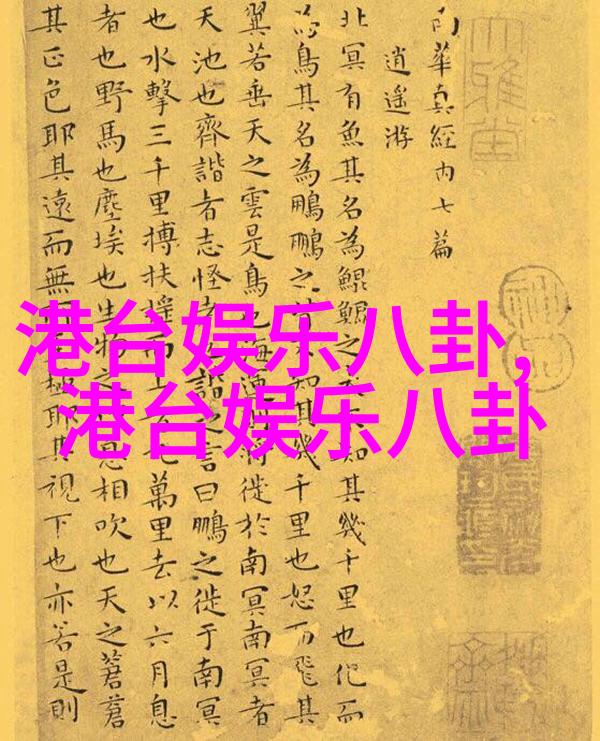 港台娱乐八卦,
港台娱乐八卦
大雅堂
神品
南華真經内七篇
逍遥游
北冥有魚其名為鯤鯤之大不知其幾千里也化而
為鳥其名為鵬鵬之背不知其幾千里也怒而飛其
翼若垂天之雲是鳥也海運則將徙於南冥南冥者
天池也齊諧者志怪者也諧之言曰鵬之徙于南冥
也水擊三千里搏扶摇而上者九萬里去以六月息
者也野馬也塵埃也生物之以息相吹也天之蒼蒼
其正色耶其遠而無所至極耶其視下也亦若是則